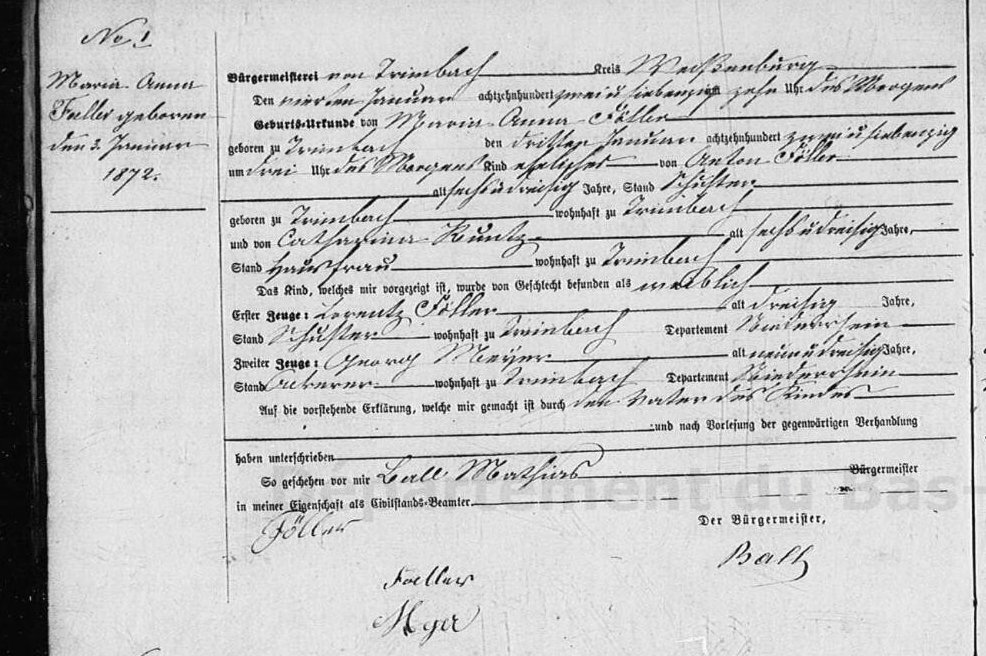 No 1
Maria Anna
Faller geboren
den 3. Januar
1872.
Bürgermeisterei von Trimbach Kreis Weißenburg
Den vierten Januar achtzehnhundert zwei u siebenzig um zehn Uhr des Morgens
Geburts-Urkunde von Maria Anna Föller
geboren zu Trimbach den dritten Januar achtzehnhundert zwei u siebenzig
um drei Uhr des Morgens Kind eheliches von Anton Föller
alt sechs u dreisig Jahre, Stand Schuster
geboren zu Trimbach wohnhaft zu Trimbach
und von Catharina Kuntz alt sechs u dreisig Jahre,
Stand Hausfrau wohnhaft zu Trimbach
Das Kind, welches mir vorgezeigt ist, wurde von Geschlecht befunden als weiblich
Erster Zeuge: Lorentz Föller alt dreisig Jahre,
Stand Schuster wohnhaft zu Trimbach Departement Niederrhein
Zweiter Zeuge: Georg Meÿer alt neun u dreisig Jahre,
Stand Ackerer wohnhaft zu Trimbach Departement Niederrhein
Auf die vorstehende Erklärung, welche mir gemacht ist durch den Vater des Kindes
und nach Vorlesung der gegenwärtigen Verhandlung
haben unterschrieben
So geschehen vor mir Ball Mathias Bürgermeister
in meiner Eigenschaft als Civilstands-Beamter
Der Bürgermeister,
Föller
Ball
Faller
Myer